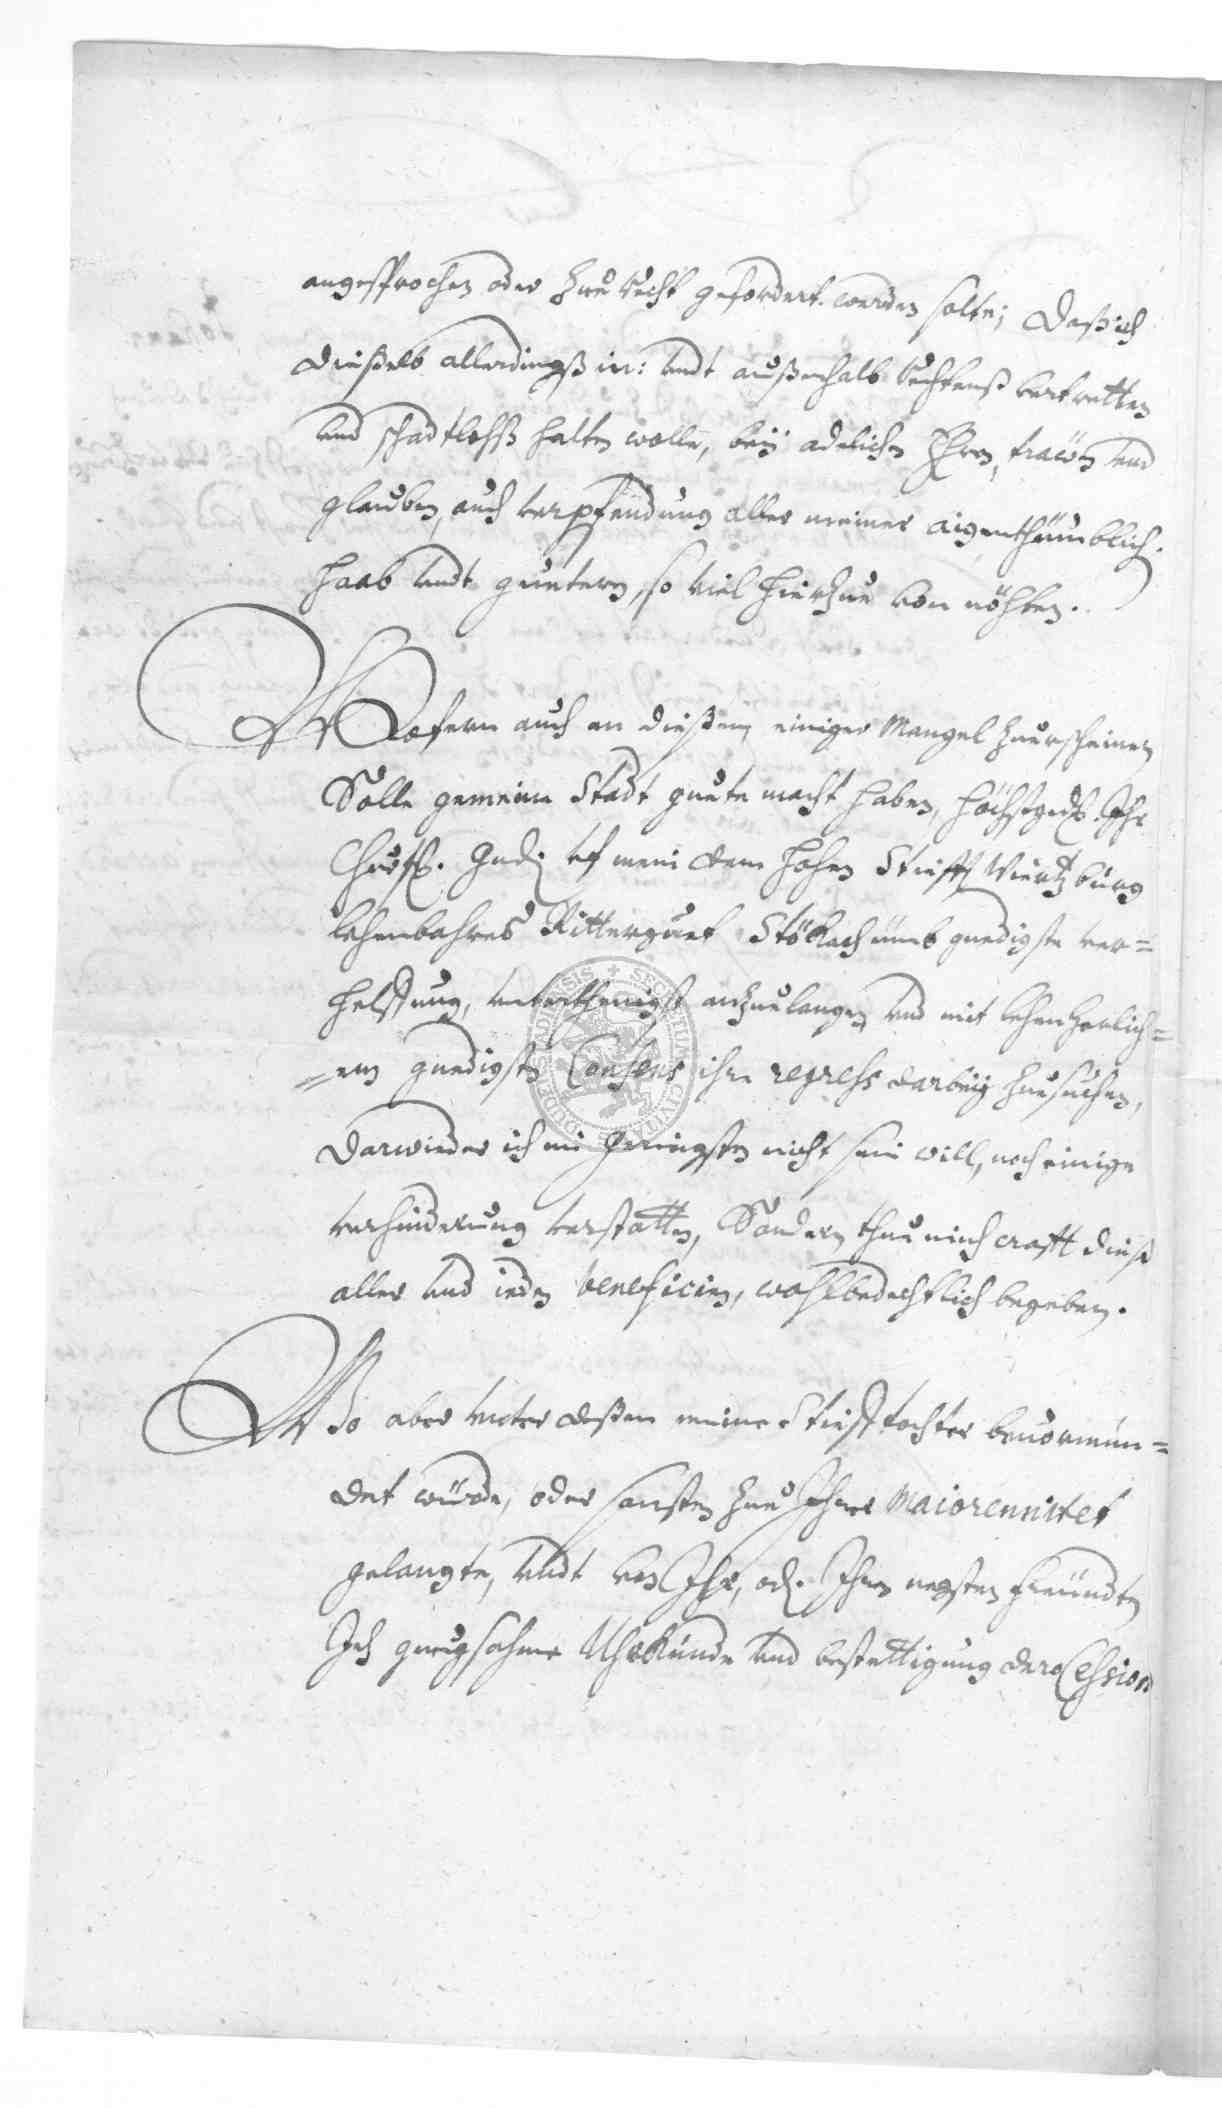 angesprochen oder zue Recht gefordert werden solte; daß ich
dieselb allerdingß in: undt außerhalb Rechtenß vertretten
und schadtloß halten wolle, beÿ adelichen Ehren, trawen und
glauben, auch verpfendung aller meiner aigenthümblich.
haab undt guetern, so viel hierzue von nöhten.
Wofern auch an dießem einiger Mangel zuerscheinen
Solle gemeine Stadt guete macht haben, höchstged. Ihr
Churf. Gnd. uf mein dem hohen Stiefft Würtzburg
lehenbahres Ritterguet Stöckach umb gnedigste ver=
helffung, unterthenigst anzuelangen und mit lehenherlich=
=em gnedigsten Consens ihre regress darbeÿ zuesuchen,
darwieder ich im geringsten nicht sein will, noch einige
verhinderung verstatten, Sondern thue mich crafft dieß
aller und ieden beneficien, wohlbedechtlich begeben.
Wo aber unter deßen meine Stieftochter bevormün=
det würde, oder sonsten zue Ihrer Maiorennitet
gelangte, undt von Ihr, od. Ihren negsten freundten
Ich gnugsahme Uhrkunde und bestettigung dero Cession
SECRETUM CIVITATIS